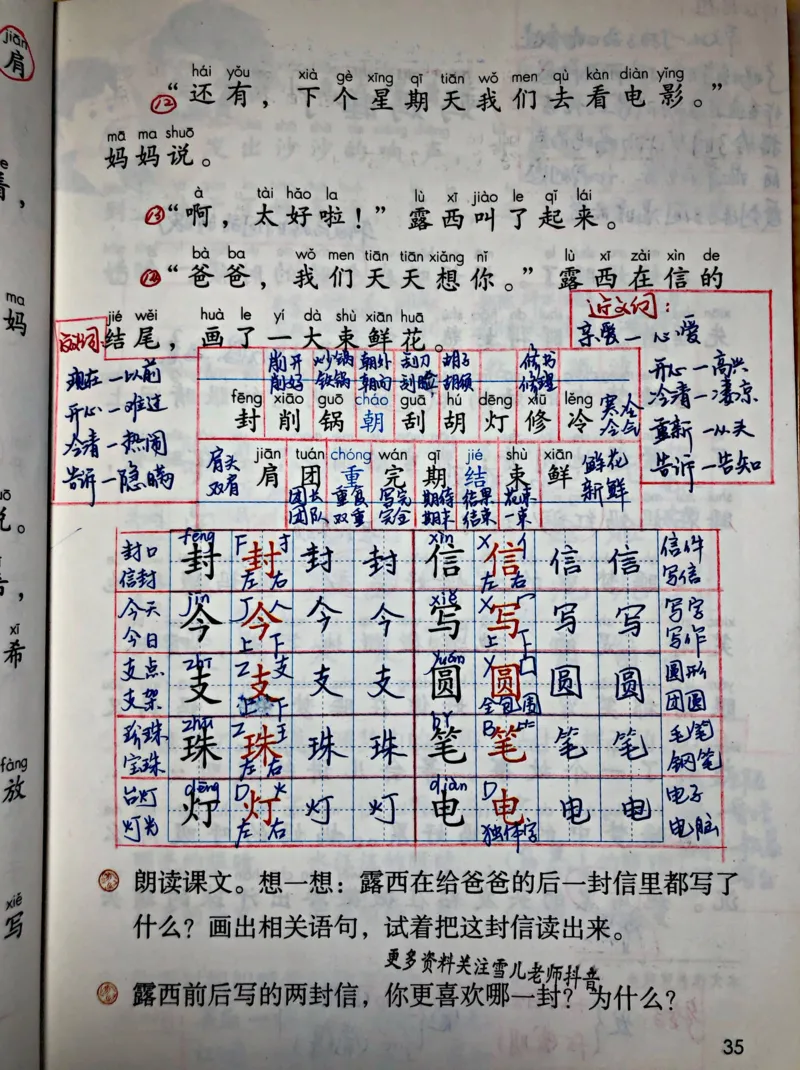 jiān
肩
hái yǒu xià gè xīng qī tiān wǒ men qù kàn diàn yǐng
⑫“还有，下个星期天我们去看电影。”
mā ma shuō
妈妈说。
à tài hǎo la lù xī jiào le qǐ lái
⑬“啊，太好啦！”露西叫了起来。
bà ba wǒ men tiān tiān xiǎng nǐ lù xī zài xìn de
⑭“爸爸，我们天天想你。”露西在信的
jié wěi huà le yí dà shù xiān huā
结尾，画了一大束鲜花。
近义词：
亲爱—心爱
开心—高兴
冷清—凄凉
重新—从头
告诉—告知
反义词
现在—以前
开心—难过
冷清—热闹
告诉—隐瞒
削开 炒锅 朝外 刮刀 胡子 修书
削好 铁锅 朝向 刮脸 胡须 修理
fēng xiāo guō cháo guā hú dēng xiū lěng
封 削 锅 朝 刮 胡 灯 修 冷
寒冷
冷气
jiān tuán chóng wán qī jié shù xiān
肩 团 重 完 期 结 束 鲜
肩头
双肩
鲜花
新鲜
团长 重复 写完 期待 结果 花束
团队 双重 完全 期末 结束 一束
fēng xìn
封口 封 封 封 封 信 信 信 信 信件
信封 左右 左右 写信
jīn xiě
今天 今 今 今 今 写 写 写 写 写字
今日 上下 上下 写作
zhī yuán
支点 支 支 支 支 圆 圆 圆 圆 圆形
支架 上下 全包围 团圆
zhū bǐ
珍珠 珠 珠 珠 珠 笔 笔 笔 笔 毛笔
宝珠 左右 钢笔
dēng diàn
台灯 灯 灯 灯 灯 电 电 电 电 电子
灯光 左右 独体字 电脑
朗读课文。想一想：露西在给爸爸的后一封信里都写了
什么？画出相关语句，试着把这封信读出来。
更多资料关注雪儿老师抖音
露西前后写的两封信，你更喜欢哪一封？为什么？
35
ma
妈
说。
xī
希
fàng
放
xiě
写